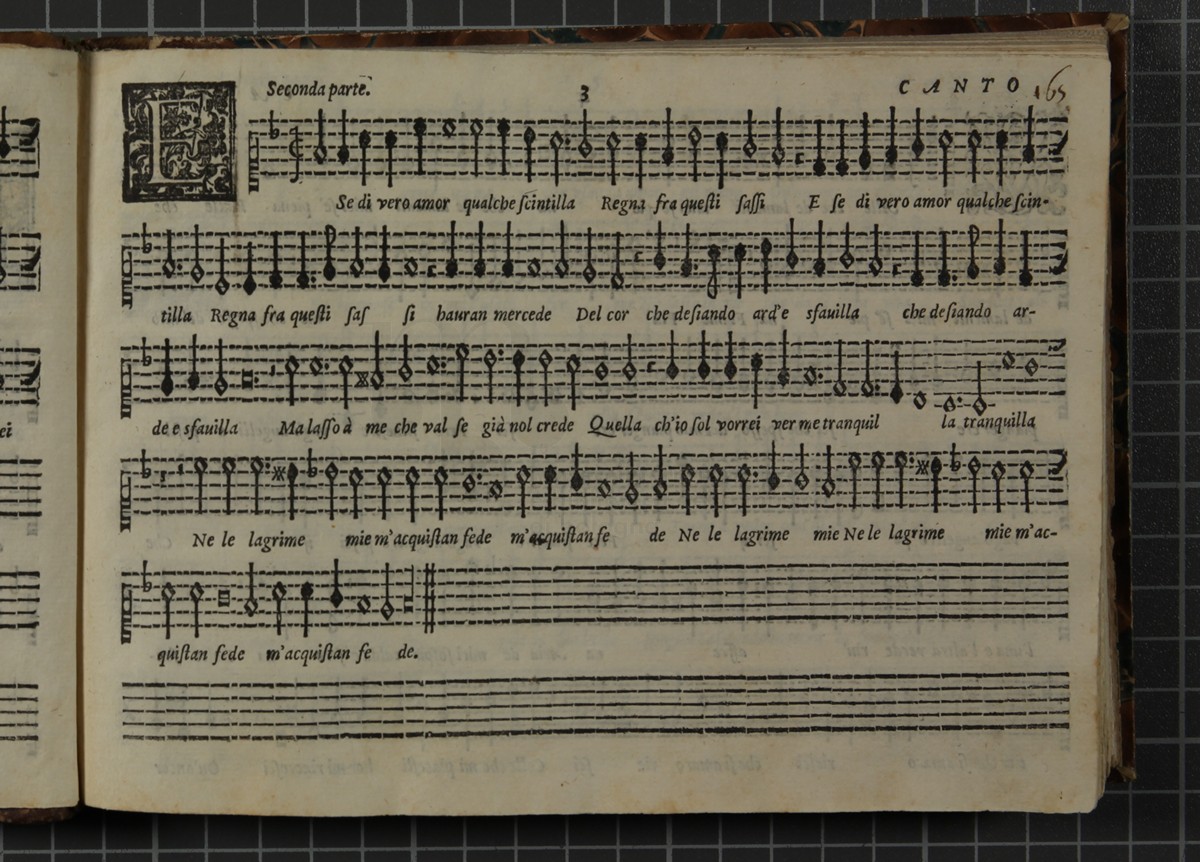 Seconda parte. 3 CANTO 165
E Se di vero amor qualche scintilla Regna fra questi sassi E se di vero amor qualche scin-
tilla Regna fra questi sas si hauran mercede Del cor che desiando ard'e sfauilla che desiando ar-
de e sfauilla Ma lasso à me che val se già nol crede Quella ch'io sol vorrei ver me tranquil la tranquilla
Ne le lagrime mie m'acquistan fede m'acquistan fe de Ne le lagrime mie Ne le lagrime mie m'ac-
quistan fede m'acquistan fe de.
ei